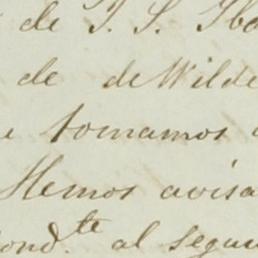 de T. S. Iba
de deWilde
tomamos
Hemos avisa
ond.te al segu